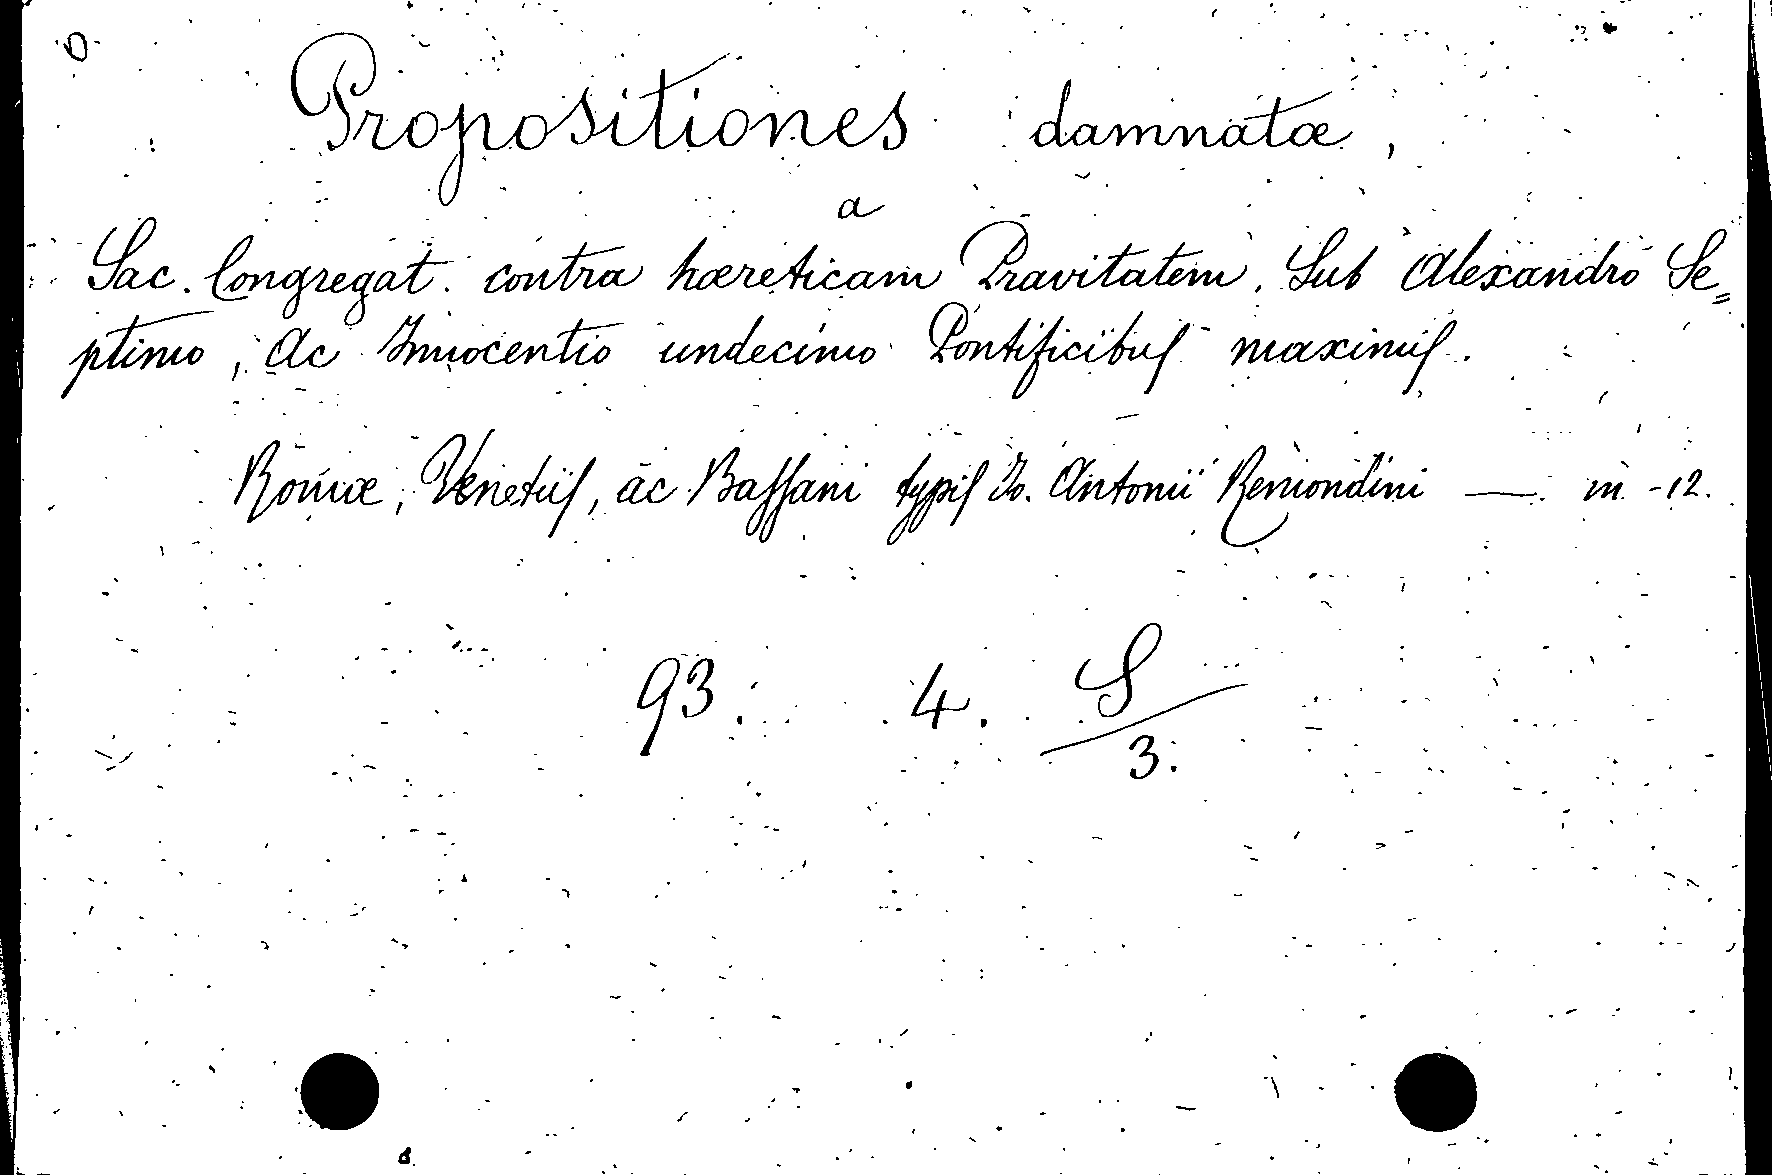 O.
Propositiones damnatæ,
a
Sac. Congregat. contra hæreticam Pravitatem. Sub Alexandro Se=
ptimo, Ac Innocentio undecimo Pontificibus maximis.
Romæ, Venetiis, ac Bassani typis Io. Antonii Remondini — in -12.
93. 4. S/3.